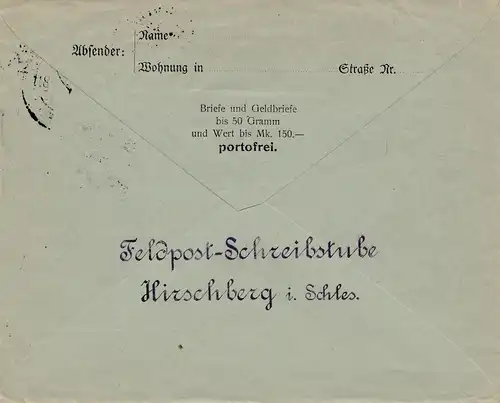 Name
Absender:
Wohnung in Straße Nr.
Briefe und Geldbriefe
bis 50 Gramm
und Wert bis Mk. 150.—
portofrei.
Feldpost-Schreibstube
Hirschberg i. Schles.